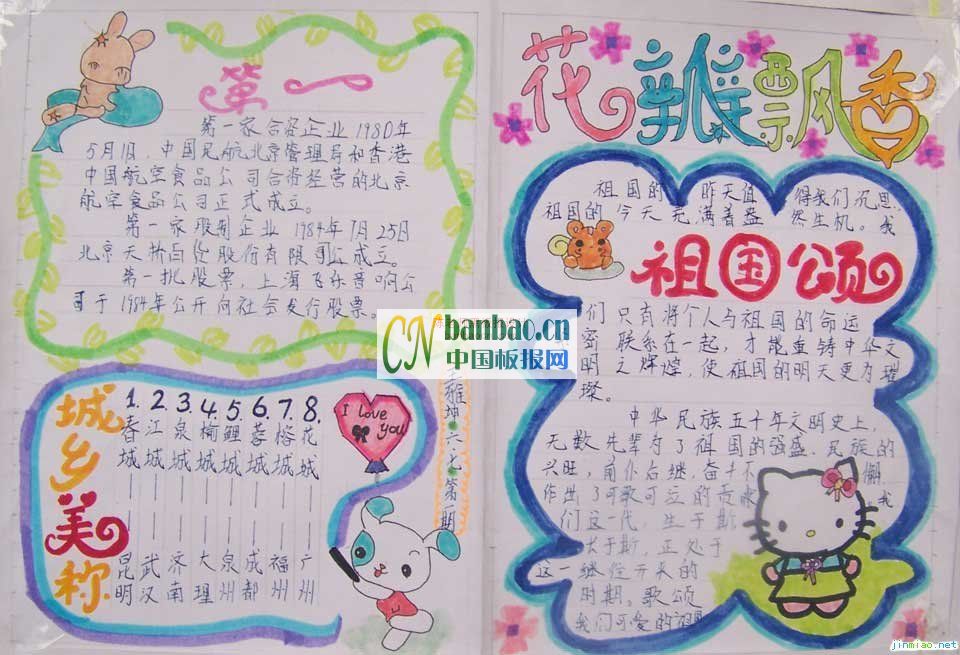 第一
第一家合资企业1980年
5月1日,中国民航北京管理局和香港
中国航空食品公司合资经营的北京
航空食品公司正式成立。
第一家股制企业1984年7月25日
北京天桥百货股份有限公司成立。
第一批股票,上海飞乐音响公
司于1984年公开向社会发行股票。
城乡美称
1. 春城——昆明
2. 江城——武汉
3. 泉城——济南
4. 榆城——大理
5. 鲤城——泉州
6. 蓉城——成都
7. 榕城——福州
8. 花城——广州
I love
you
雅坤 六 第 期
花瓣飘香
祖国的 昨天值 得我们沉思
祖国的 今天充满着盎 然生机。我
祖国颂
们只有将个人与祖国的命运
密联系在一起,才能重铸中华文
明之辉煌,使祖国的明天更为璀
璨。
中华民族五千年文明史上,
无数先辈为了祖国的强盛.民族的
兴旺,前仆后继,奋斗不 懈
作出了可歌可泣的贡献 。我
们这一代,生于斯
长于斯,正处于
这一继往开来的
时期。歌颂
我们可爱的祖国
CN banbao.cn
中国板报网
jinmiao.net